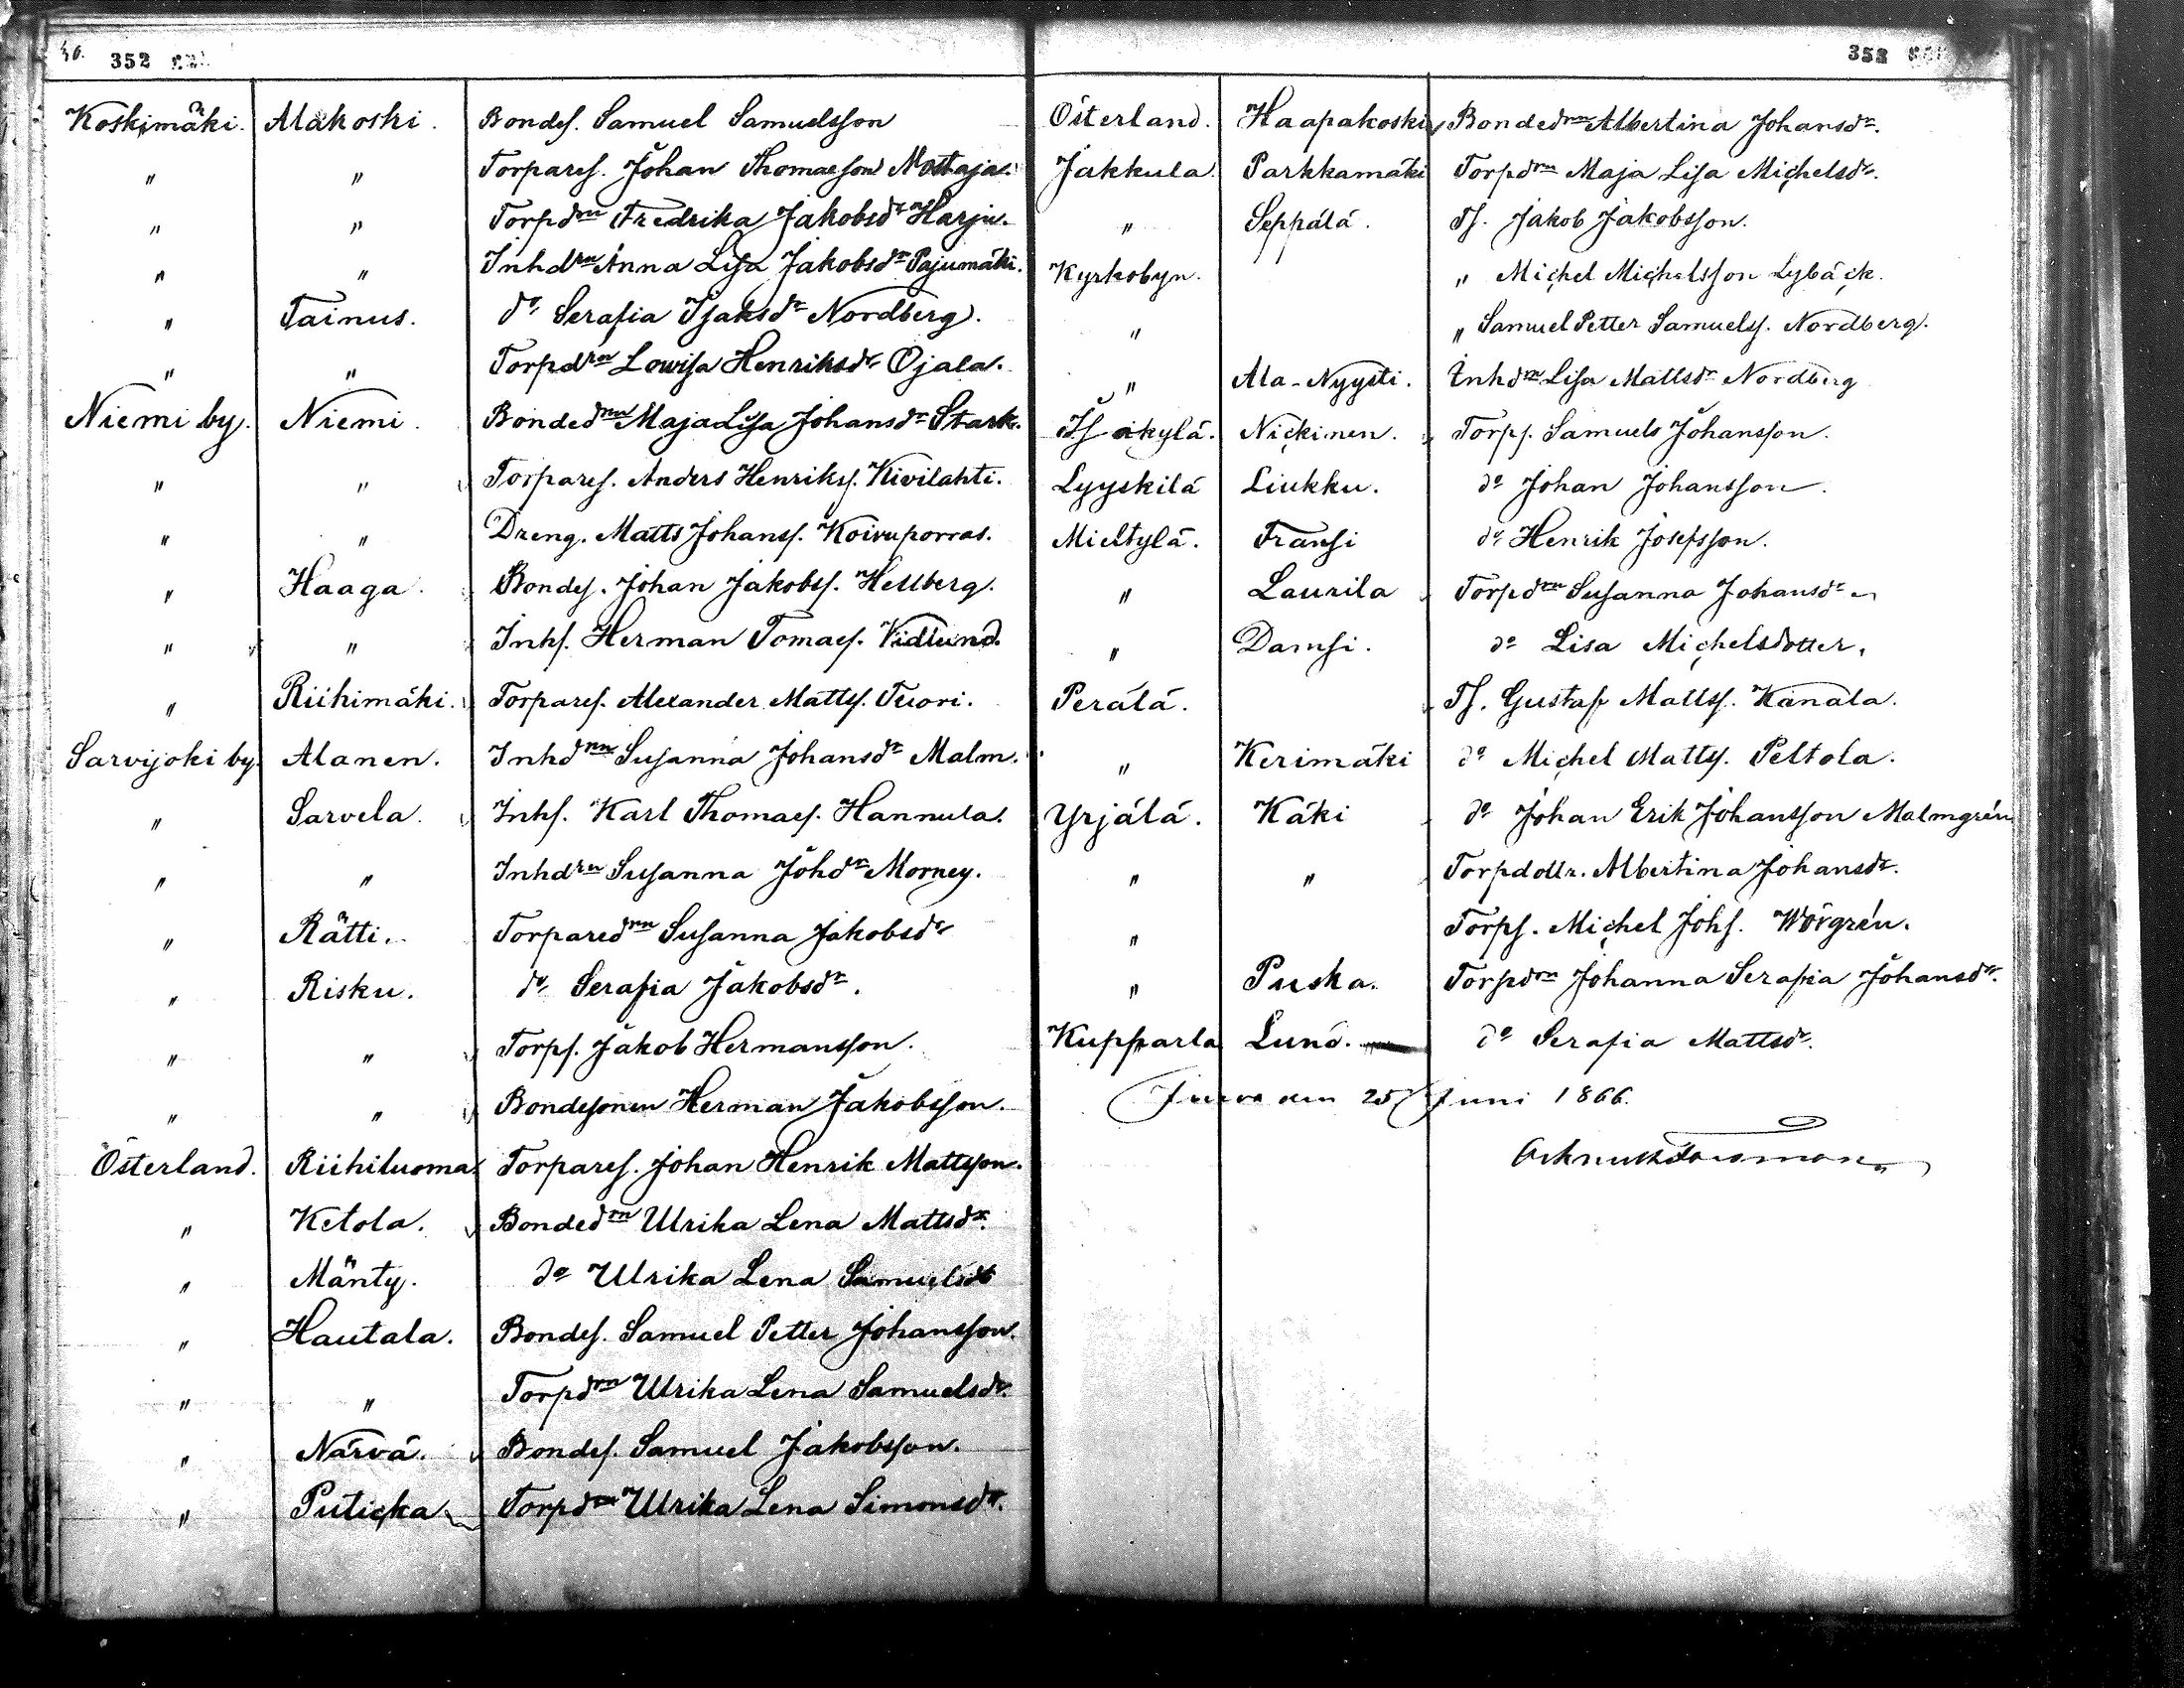 40. 352
Koskimäki. Alakoski. Bondes. Samuel Samuelsson
" " Torpares. Johan Thomaeson Mottaja.
" " Torpdrn Fredrika Jakobsdr Harju.
" " Inhdrn Anna Lisa Jakobsdr Pajumäki.
" Tainus. do Serafia Isaksdr Nordberg.
" " Torpdrn Lowisa Henriksdr Ojala.
Niemi by. Niemi. Bondedrn Maja Lisa Johansdr Stark.
" " Torpares. Anders Henriks. Kivilahti.
" " Dreng. Matts Johans. Koivuporras.
" Haaga. Bondes. Johan Jakobs. Hellberg.
" " Inhs. Herman Tomaes. Vidlund.
" Riihimäki. Torpares. Alexander Matts. Tuori.
Sarvijoki by Alanen. Inhdrn Susanna Johansdr Malm.
" Sarvela. Inhs. Karl Thomaes. Hannula.
" " Inhdrn Susanna Johdr Morney.
" Rätti. Torparedrn Susanna Jakobsdr
" Risku. do Serafia Jakobsdr.
" " Torps. Jakob Hermansson.
" " Bondesonen Herman Jakobsson.
Österland. Riihiluoma Torpares. Johan Henrik Mattsson.
" Ketola. Bondedrn Ulrika Lena Mattsdr.
" Mänty. do Ulrika Lena Samuelsdr
" Hautala. Bondes. Samuel Petter Johansson.
" " Torpdrn Ulrika Lena Samuelsdr.
" Närvä. Bondes. Samuel Jakobsson.
" Puticka Torpdrn Ulrika Lena Simonsdr.
353
Österland. Haapakoski Bondedrn Albertina Johansdr.
Jakkula. Parkkamäki Torpdrn Maja Lisa Michelsdr.
" Seppälä. Ts. Jakob Jakobsson.
Kyrkobyn. " Michel Michelsson Lybäck.
" " Samuel Petter Samuels. Nordberg.
" Ala-Nyysti. Inhdrn Lisa Mattsdr Nordberg
Isäkylä. Nickinen. Torps. Samuels Johansson.
Lyyskilä Liukku. do Johan Johansson.
Mieltylä. Fransi do Henrik Josefsson.
" Laurila Torpdrn Susanna Johansdr
" Damsi. do Lisa Michelsdotter.
Perälä. Ts. Gustaf Matts. Kanala.
" Kerimäki do Michel Matts. Peltola.
Yrjälä. Käki do Johan Erik Johansson Malmgrén
" " Torpdottr. Albertina Johansdr.
" Torps. Michel Johs. Wörgrén.
" Puska. Torpdrn Johanna Serafia Johansdr.
Kupparla Lund. do Serafia Mattsdr.
Jurva den 25 Juni 1866.